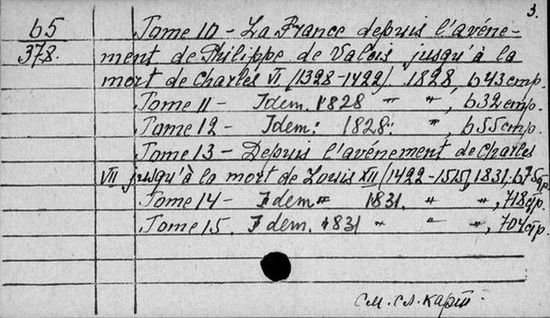 3.
65
378.
Tome 10 - La France depuis l'avéne-
ment de Philippe de Valois jusqu'à la
mort de Charles VI (1328-1422) 1828, 643 стр.
Tome 11 - Idem. 1828 " ", 632 стр.
Tome 12 - Idem: 1828: " ", 655 стр.
Tome 13 - Depuis l'avénement de Charles
VII jusqu'à la mort de Louis XII (1422-1515), 1831. 675 стр.
Tome 14 - Idem " 1831. " ", 718 стр.
Tome 15. Idem. " 1831 " ", 704 стр.
см. сл. карт.